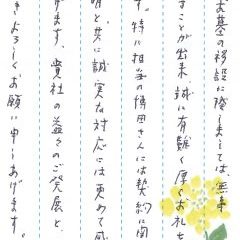 お墓の移設に際しましては、無事
すことが出来、誠に有難く厚くお礼を
す。特に担当の博田さんには契約に関
明と共に誠実な対応には更めて感
げます。貴社の益々のご発展と
きよろしくお願い申しあげます。